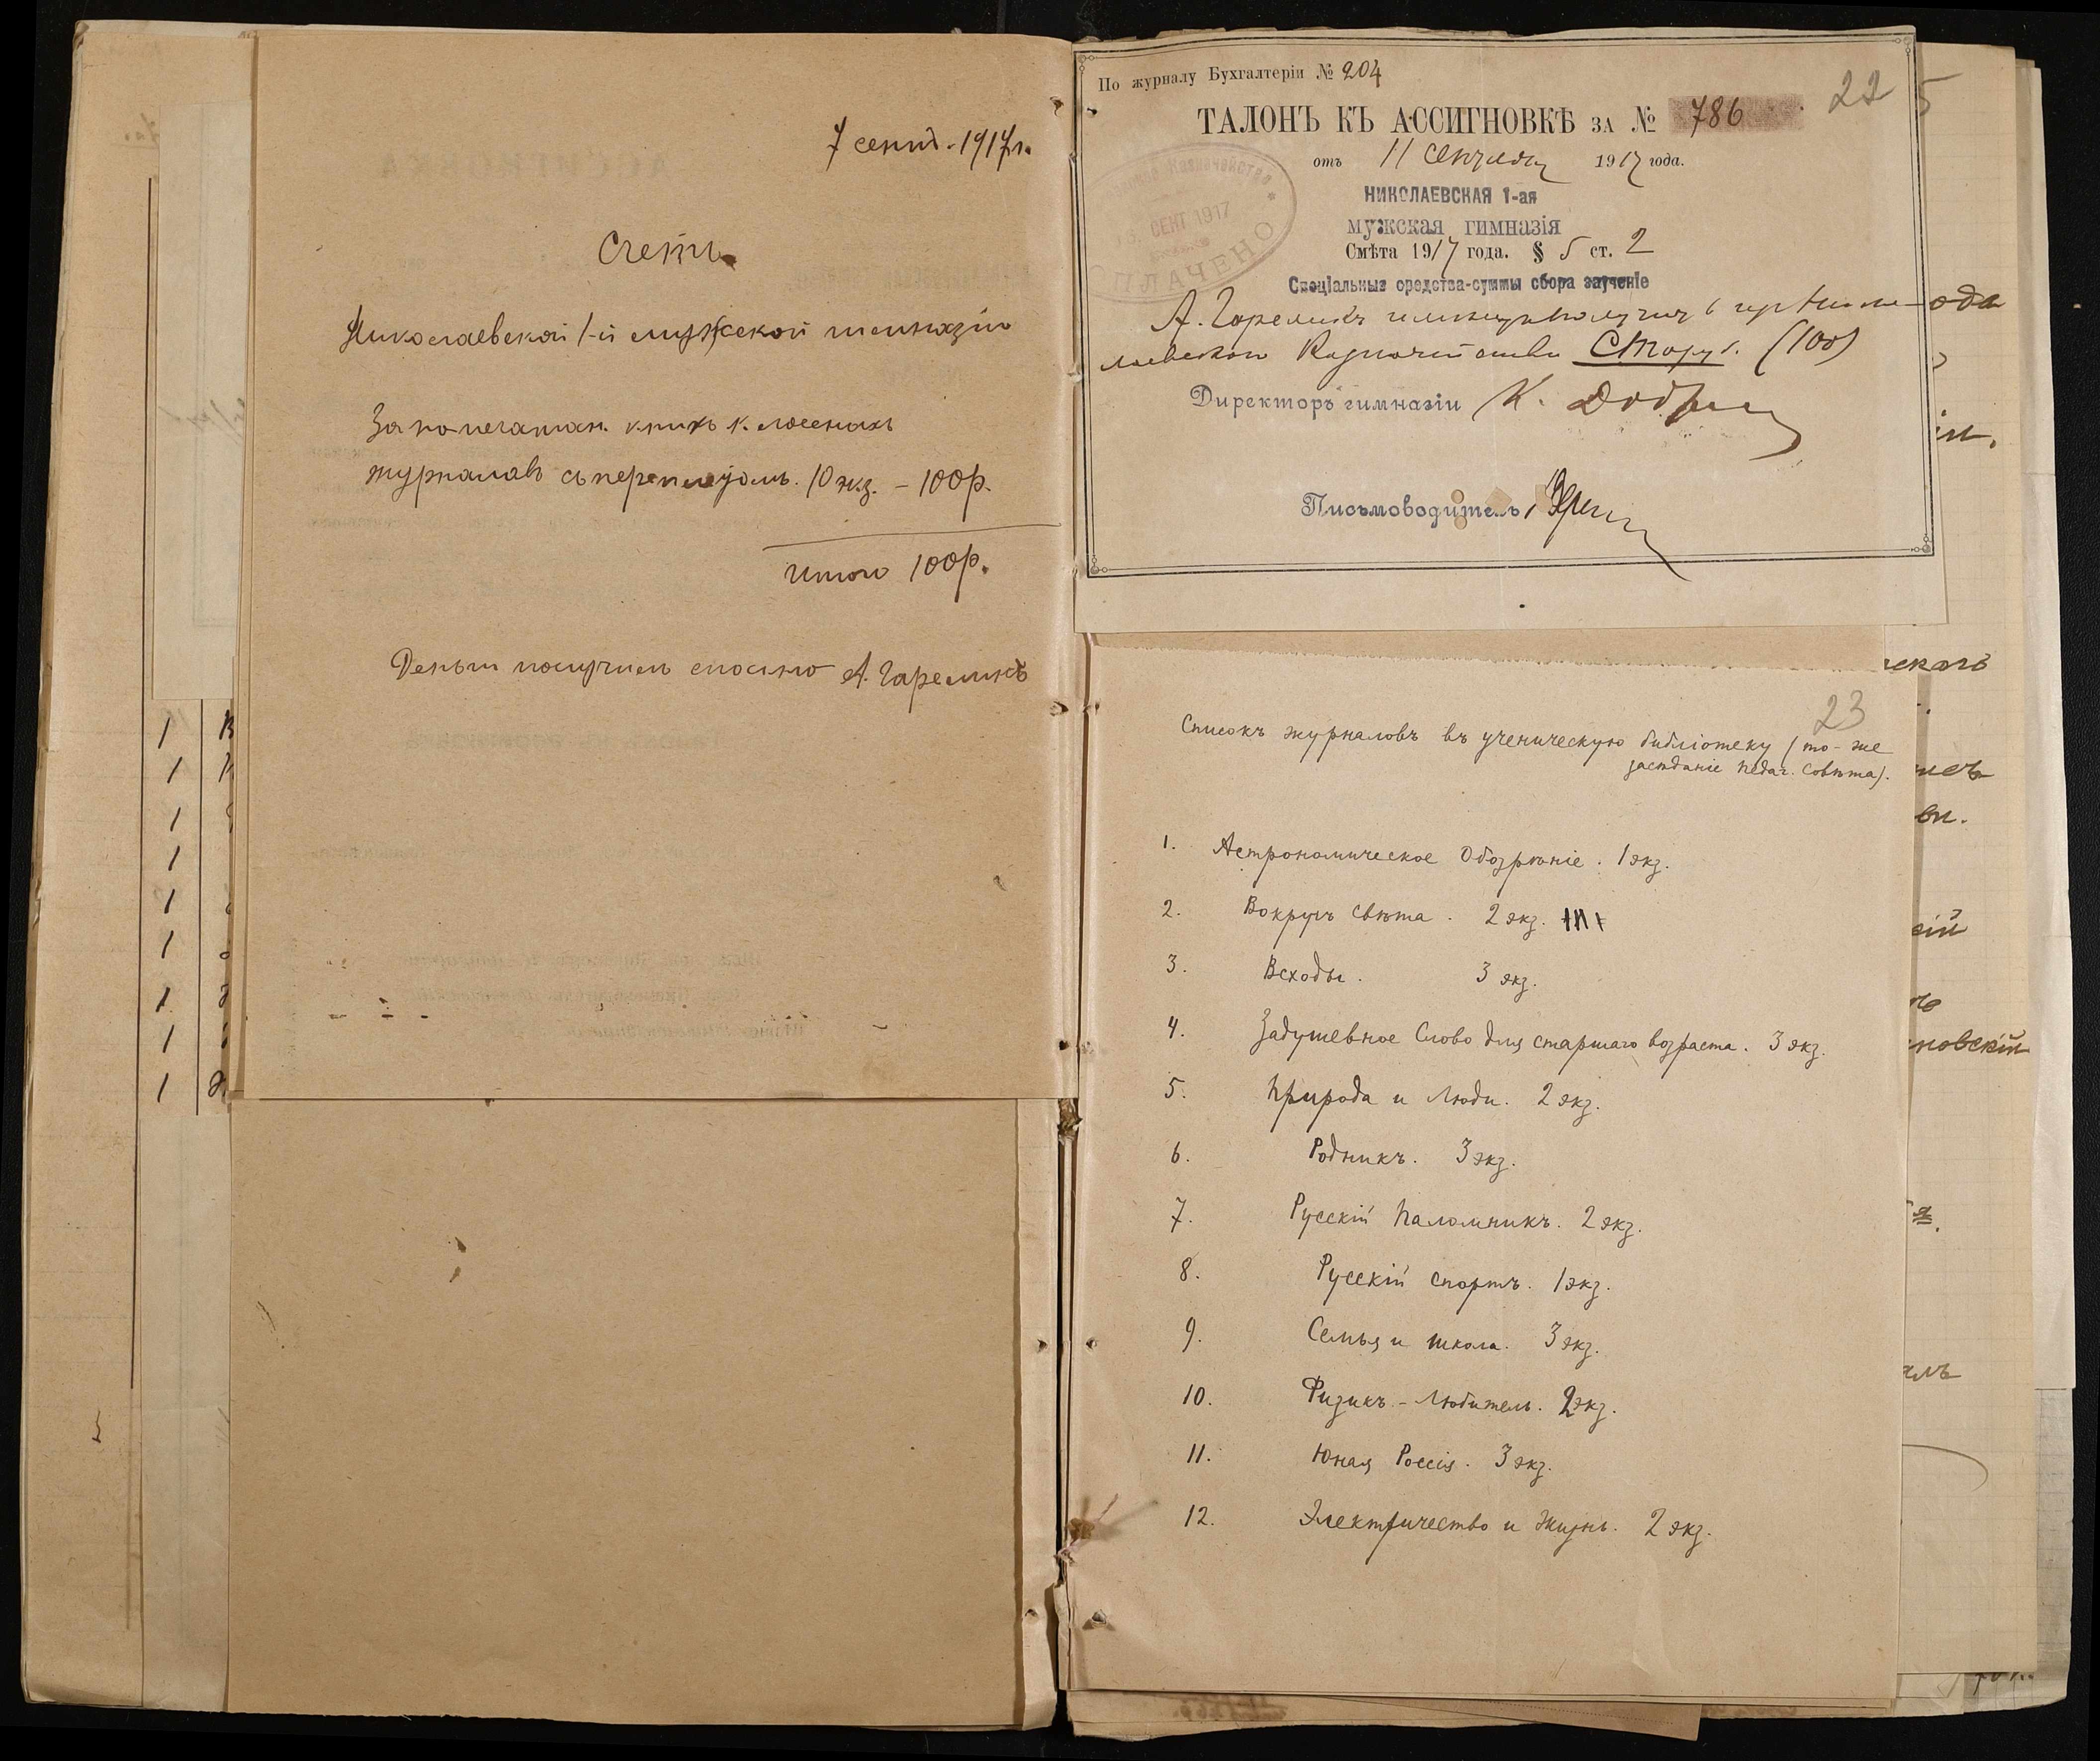 7 сент. 1917г.
Счетъ
Николаевской 1-й мужской гимназіи
За попечатан. книгъ к.
журналовъ съ переплетомъ. 10 экз. – 100р.
Итого 100р.
Деньги получилъ сполна А. Гореликъ
По журналу Бухгалтеріи № 204
22
ТАЛОНЪ КЪ АССИГНОВКѢ ЗА № 786
отъ 11 Сентября 1917 года.
НИКОЛАЕВСКАЯ 1-ая
мужская гимназія
Смѣта 1917 года. § 5 ст. 2
Казначейство
СЕНТ 1917
ПЛАЧЕНО
Спеціальныя средства-суммы сбора за ученіе
А. Гореликъ имѣетъ получить
Казначейства Сто руб. (100)
Директоръ гимназіи К.
Письмоводитель
23
Списокъ журналовъ въ ученическую библіотеку (то-же
засѣданіе педаг. Совѣта).
1. Астрономическое Обозрѣніе. 1 экз.
2. Вокругъ Свѣта. 2 экз.
3. Всходы. 3 экз.
4. Задушевное Слово для старшаго возраста. 3 экз.
5. Природа и Люди. 2 экз.
6. Родникъ. 3 экз.
7. Русскій Паломникъ. 2 экз.
8. Русскій спортъ. 1 экз.
9. Семья и школа. 3 экз.
10. Физикъ-Любитель. 2 экз.
11. Юная Россія. 3 экз.
12. Электричество и Жизнь. 2 экз.